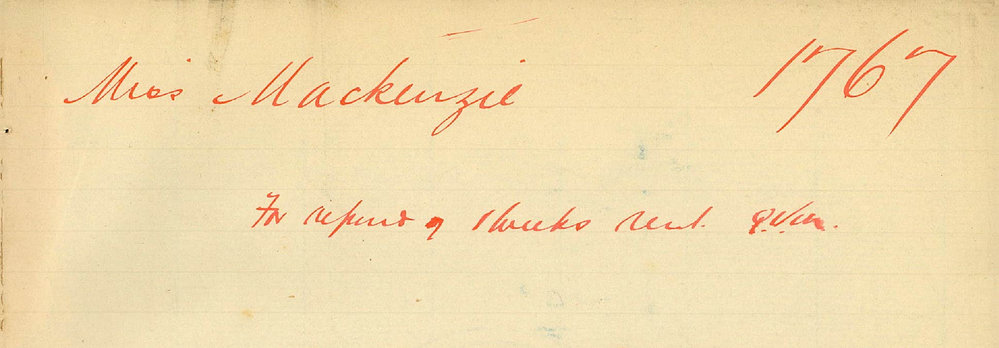 Miss Mackenzie 1767
For refund of 1 weeks rent.